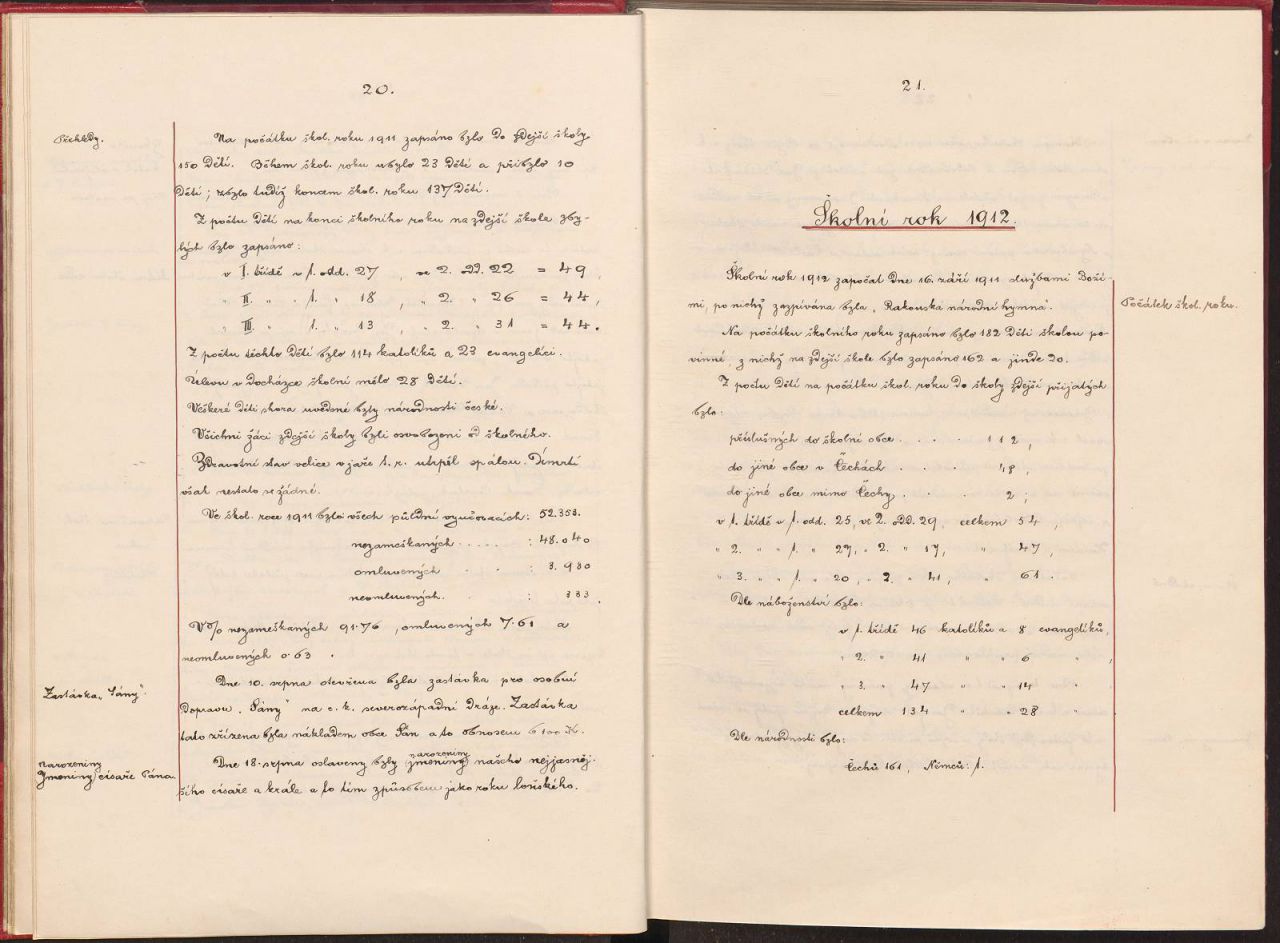 20.
Přehledy.
Na počátku škol. roku 1911 zapsáno bylo do zdejší školy
150 dětí. Během škol. roku ubylo 23 dětí a přibylo 10
dětí; zbylo tudíž koncem škol. roku 137 dětí.
Z počtu dětí na konci školního roku na zdejší škole zby-
lých bylo zapsáno:
v I. třídě v 1. odd. 27 ve 2. odd. 22 = 49,
" II. " " 1. " 18, " 2. " 26 = 44,
" III. " 1. " 13, " 2. " 31 = 44.
Z počtu těchto dětí bylo 114 katolíků a 23 evangelíci.
Úlevu v docházce školní mělo 28 dětí.
Veškeré děti shora uvedené byly národnosti české.
Všichni žáci zdejší školy byli osvobozeni od školného.
Zdravotní stav velice v jaře t. r. utrpěl spálou. Úmrtí
však nestalo se žádné.
Ve škol. roce 1911 bylo všech půldní vyučovacích: 52.353.
nezameškaných . . . . . : 48.040
omluvených . . : 3.980
neomluvených. . : 333.
V % nezameškaných 91·76, omluvených 7·61 a
neomluvených 0·63.
Zastávka „Sány".
Dne 10. srpna otevřena byla zastávka pro osobní
dopravu „Sány" na c. k. severozápadní dráze. Zastávka
tato zřízena byla nákladem obce Sán a to obnosem 6100 K.
narozeniny
Jmeniny císaře Pána.
narozeniny
Dne 18. srpna oslaveny byly jmeniny našeho nejjasněj-
šího císaře a krále a to tím způsobem jako roku loňského.
21.
Školní rok 1912.
Počátek škol. roku.
Školní rok 1912 započat dne 16. září 1911 službami Boží-
mi, po nichž zazpívána byla „Rakouská národní hymna".
Na počátku školního roku zapsáno bylo 182 dětí školou po-
vinné, z nichž na zdejší škole bylo zapsáno 162 a jinde 20.
Z počtu dětí na počátku škol. roku do školy zdejší přijatých
bylo:
příslušných do školní obce . . . . 112,
do jiné obce v Čechách . . . 48,
do jiné obce mimo Čechy . . . 2;
v 1. třídě v 1. odd. 25, ve 2. odd. 29, celkem 54,
" 2. " " 1. " 29, " 2. " 17, " 47,
" 3. " " 1. " 20, " 2. " 41, " 61
Dle náboženství bylo:
v 1. třídě 46 katolíků a 8 evangelíků,
" 2. " 41 " " 6 " ,
" 3. " 47 " " 14 "
celkem 134 " " 28 "
Dle národnosti bylo:
Čechů 161, Němců: 1.